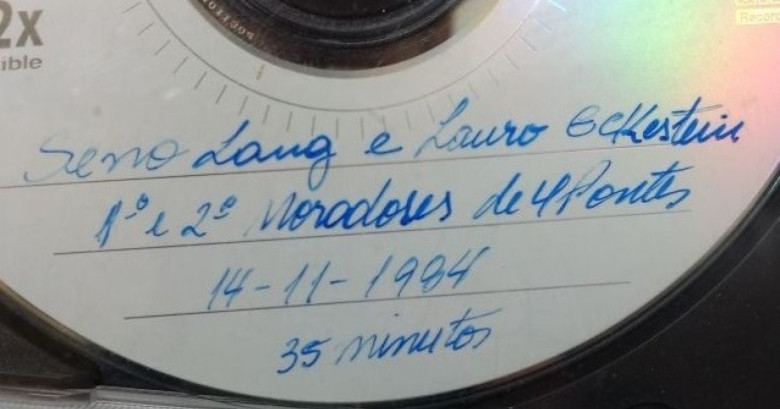 2x
ible
Record
Seno Lang e Lauro Eckestein
1º e 2º Moradores de 4 Pontes
14-11-1984
35 minutos